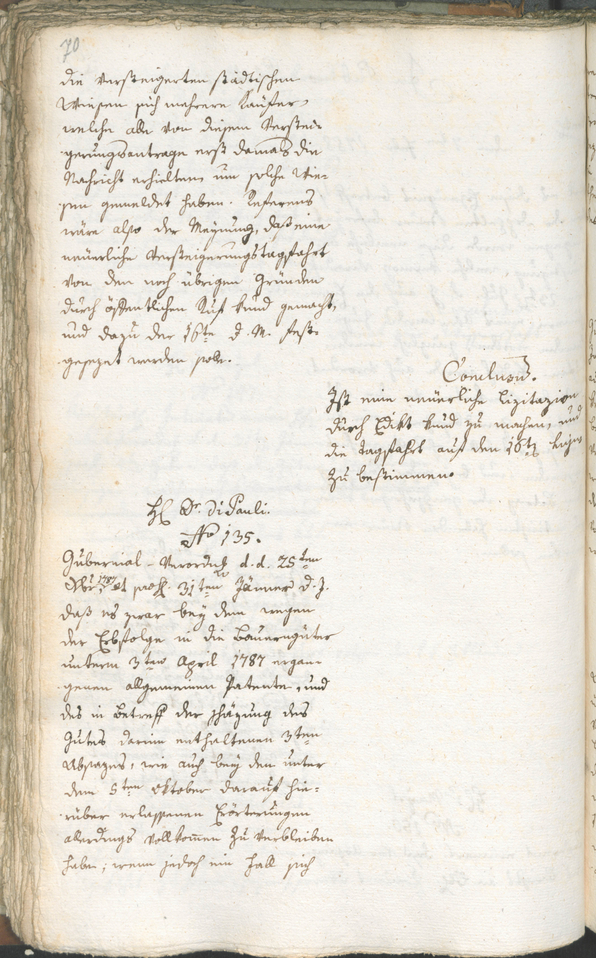 70
die versteigerten städtischen
Wiesen sich mehrere Käufer
welche alle von diesem Verstei-
gerungsantrage erst damals die
Nachricht erhielten, um solche Wie-
sen gemeldet haben. Referens
wäre also der Meynung, daß eine
neuerliche Versteigerungstagsfahrt
von den noch übrigen Gründen
durch öffentlichen Ruf kund gemacht,
und dazu der 16te d. M. fest-
gesezt werden solle.
Conclusum.
Ist eine neuerliche Lizitazion
durch Edikt kund zu machen, und
die Tagsfahrt auf den 16ten hujus
zu bestimmen.
H. Dr. Di Pauli.
No 135.
Gubernial-Verordng d. d. 25ten
et 31ten Jänner d. J.
daß es zwar bey dem wegen
der Erbfolge in die Bauerngüter
unterm 3ten April 1787 ergan-
genen allgemeinen Patente, und
des in Betreff der Schäzung des
Gutes darinn enthaltenen 3ten
Absazes, wie auch bey den unter
dem 5ten Oktober darauf hie-
rüber erlassenen Erörterungen
allerdings vollkommen zu verbleiben
habe; wenn jedoch ein Fall sich